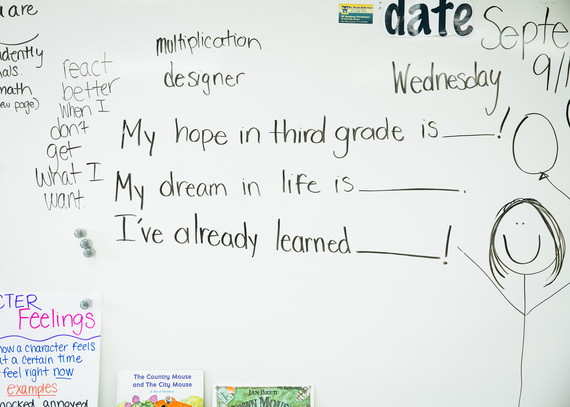 u are
date
Septe
9/1
Wednesday
multiplication
designer
dently
als.
math
ew page)
react
better
When I
don't
get
What I
want
My hope in third grade is ____!
My dream in life is ________.
I've already learned ______!
CTER
Feelings
ow a character feels
at a certain time
feel right now
examples
hocked annoyed
The Country Mouse
and The City Mouse
JAN BRETT